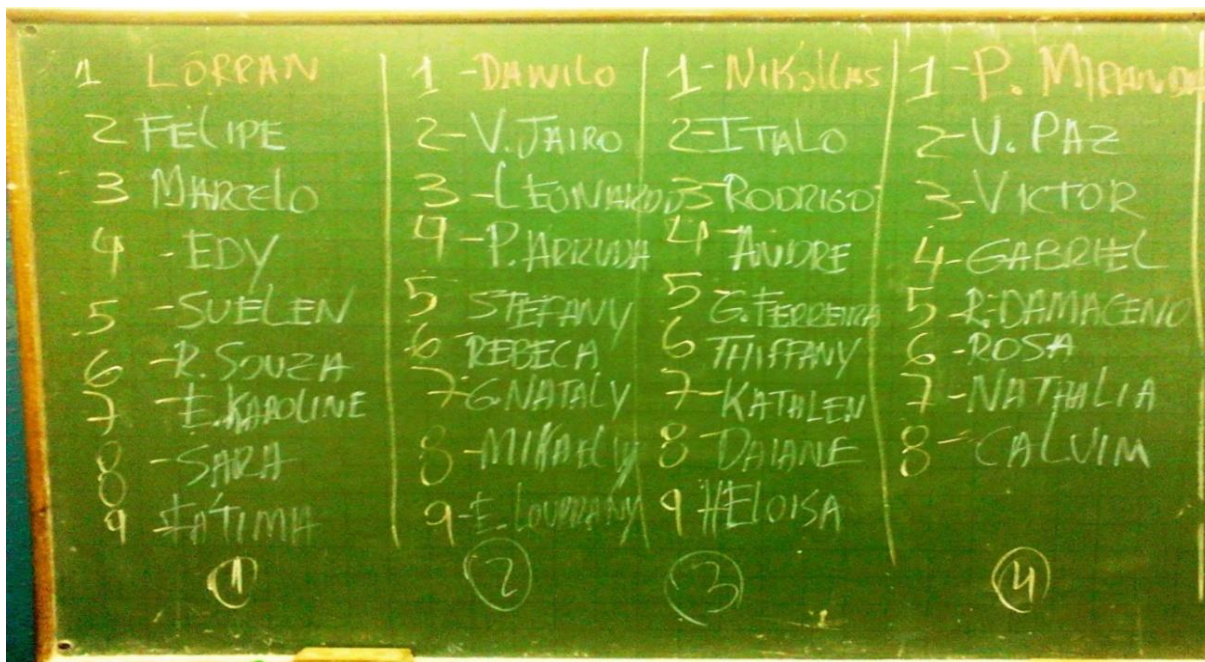 1 LORRAN
2 FELIPE
3 MARCELO
4 - EDY
5 - SUELEN
6 - R. SOUZA
7 - E. KAROLINE
8 - SARA
9 - FÁTIMA
1
1 - DANILO
2 - V. JAIRO
3 - LEONARDO
4 - P. ARRUDA
5 STEFANY
6 REBECA
7 - G. NATALY
8 - MIKAELY
9 - E. LOURRANY
2
1 - NIKOLLAS
2 - ITALO
3 - RODRIGO
4 - ANDRE
5 - G. FERREIRA
6 THIFFANY
7 - KATHLEN
8 - DAIANE
9 HELOISA
3
1 - P. MIRANDA
2 - V. PAZ
3 - VICTOR
4 - GABRIEL
5 - R. DAMACENO
6 - ROSA
7 - NATHALIA
8 - CALVIM
4